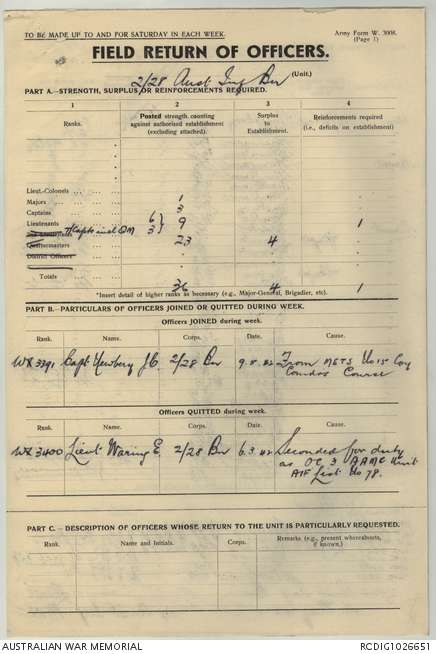 TO BE MADE UP TO AND FOR SATURDAY IN EACH WEEK.
Army Form W. 3008.
(Page 1)
FIELD RETURN OF OFFICERS.
2/28 Aust Inf Bn (Unit.)
PART A.—STRENGTH, SURPLUS OR REINFORCEMENTS REQUIRED.
1 2 3 4
Ranks. Posted strength counting against authorized establishment (excluding attached). Surplus to Establishment. Reinforcements required (i.e., deficits on establishment)
Lieut.-Colonels 1
Majors 3
Captains 6 } 9 1
Lieutenants
Capts incl QM 3
Quartermasters 23 4
District Officers
Totals 36 4 1
*Insert detail of higher ranks as necessary (e.g., Major-General, Brigadier, etc).
PART B.—PARTICULARS OF OFFICERS JOINED OR QUITTED DURING WEEK.
Officers JOINED during week.
Rank. Name. Corps. Date. Cause.
WX 3391 Capt Newbery J C. 2/28 Bn 9.5.42 From METS No 15 Coy
Comdos Course
Officers QUITTED during week.
Rank. Name. Corps. Date. Cause.
WX 3400 Lieut Waring E. 2/28 Bn 6.3.42 Seconded for duty
as OC 3 AAMC Unit
AIF List No 78.
PART C.—DESCRIPTION OF OFFICERS WHOSE RETURN TO THE UNIT IS PARTICULARLY REQUESTED.
Rank. Name and Initials. Corps. Remarks (e.g., present whereabouts, if known.)
AUSTRALIAN WAR MEMORIAL
RCDIG1026651